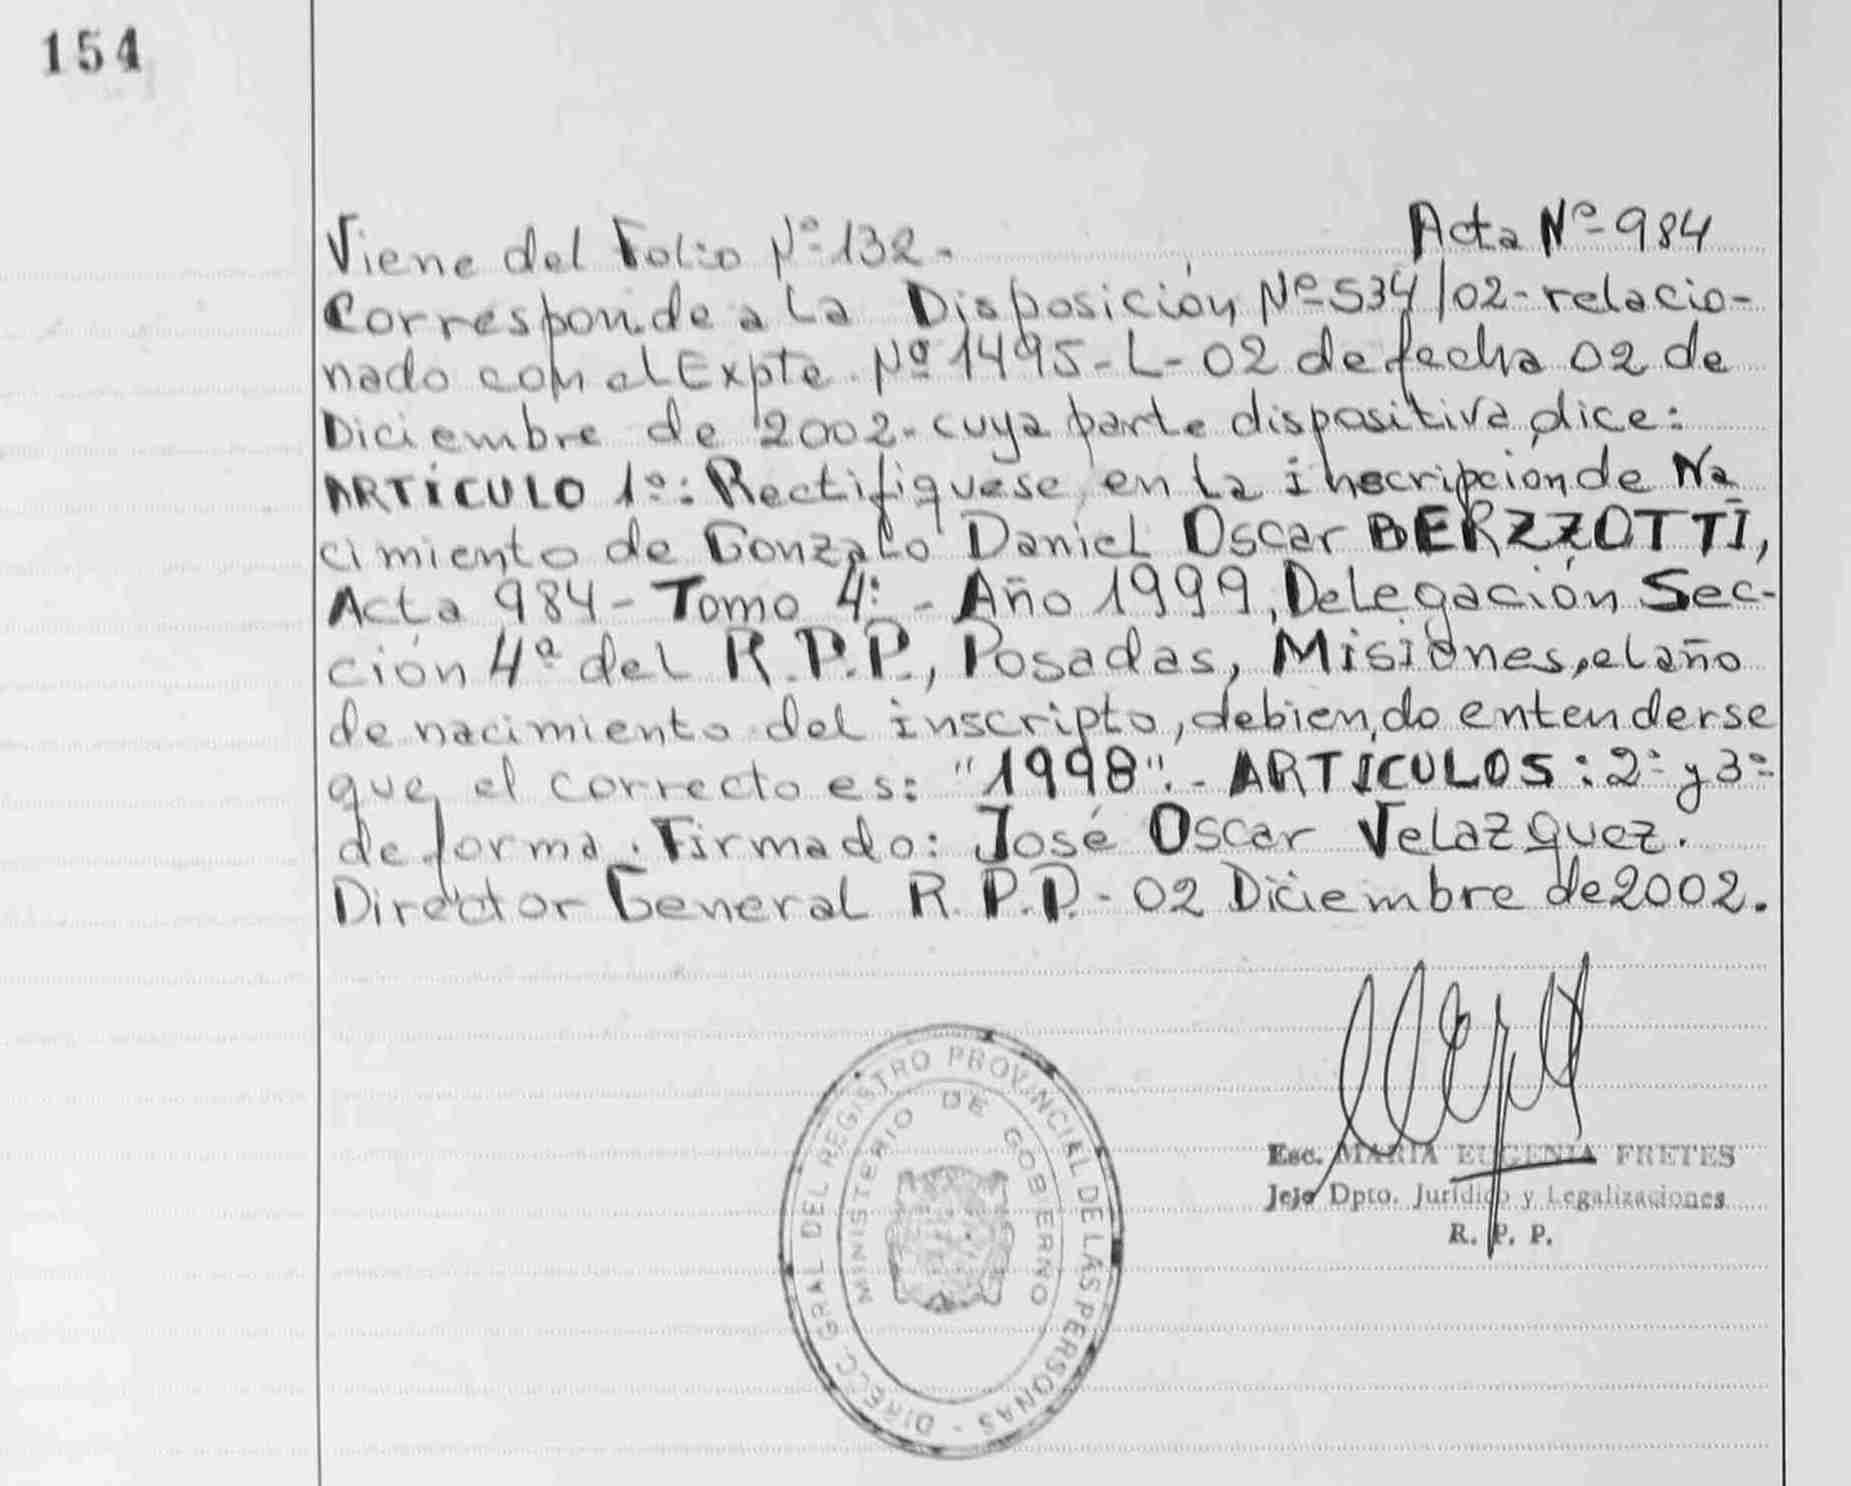 154
Viene del Folio Nº 132. Acta Nº 984
Corresponde a la Disposición Nº 534/02 - relacio-
nado con el Expte. Nº 1495-L-02 de fecha 02 de
Diciembre de 2002- cuya parte dispositiva dice:
ARTÍCULO 1º: Rectifíquese en la inscripción de Na
cimiento de Gonzalo Daniel Oscar BERZZOTTI,
Acta 984 - Tomo 4º - Año 1999, Delegación Sec-
ción 4ª del R.P.P., Posadas, Misiones, el año
de nacimiento del inscripto, debiendo entenderse
que el correcto es: "1998".- ARTÍCULOS: 2º y 3º
de forma. Firmado: José Oscar Velazquez.
Director General R.P.P.- 02 Diciembre de 2002.
DIRECC. GRAL DEL REGISTRO PROVINCIAL DE LAS PERSONAS -
MINISTERIO DE GOBIERNO
Esc. MARIA EUGENIA FRETES
Jefe Dpto. Jurídico y Legalizaciones
R. P. P.